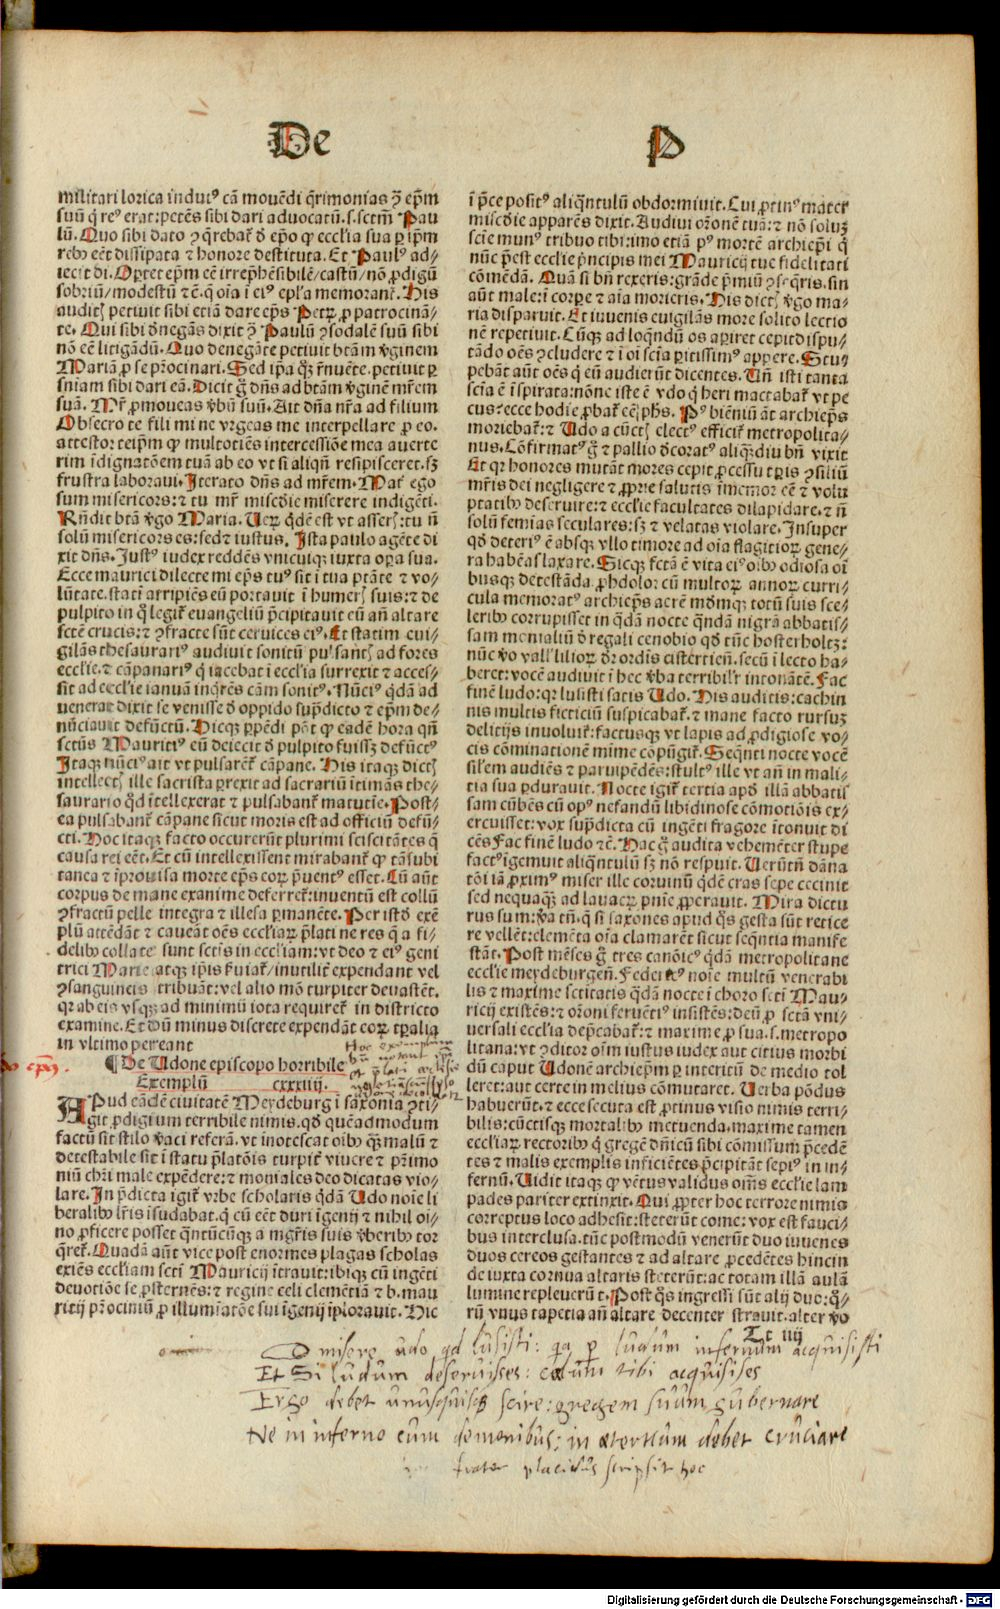 De
P
militari lorica induiꝰ cā mouēdi q̄rimonias ꝯ ep̄m
suū q̇ reꝰ erat: petēs sibi dari aduocatū. s. sctm̄ Pau
lū. Quo sibi dato ꝯ q̄rebat᷑ ꝺ ep̄o ꝙ eccl'ia sua ꝑ ip̄m
rebꝰ eēt dissipata ⁊ honore destituta. Et Paulꝰ ad⸗
iecit di. Oꝑtet ep̄m eē irrep̄hēsibilē/castū/nō ꝓdigū
sobriū/modestū ⁊ē. q̇ oīa ī eiꝰ ep̄l'a memorant᷑. His
auditꝭ petiuit sibi etiā dare ep̄s Petꝝ ꝓ patrocinā⸗
te. Qui sibi ꝺnegās dixit ꝯ Paulū ꝯsodalē suū sibi
nō eē litigādū. Quo denegāte petiuit btām v̄ginem
Mariā ꝓ se pr̄ocinari. Sed ip̄a qꝫ r̄nuēte. petiuit ꝑ
sniam sibi dari eā. Dicit g̊ dn̄s ad btām v̄ginē mr̄em
suā. Mr̄ ꝓmoueas v̄bū suū. Ait dn̄a nr̄a ad filium
Obsecro te fili mi ne vrgeas me interpellare ꝓ eo.
attestor teip̄m ꝙ multotiēs intercessiōe mea auerte
rim īdignatōem tuā ab eo vt si aliqn̄ resipisceret. sꝫ
frustra laboraui. Iterato dn̄s ad mr̄em. Mat᷑ ego
sum misericors: ⁊ tu mr̄ miscd̄ie miserere indigēti.
Rn̄dit btā v̄go Maria. Ueꝝ qd̄ē est vt asserꝭ: tu n̄
solū misericors es: sed ⁊ iustus. Ista paulo agēte di
xit dn̄s. Iustꝰ iudex reddēs vnicuiqꝫ iuxta oꝑa sua.
Ecce maurici dilecte mi ep̄s tuꝰ sit ī tua ptāte ⁊ vo⸗
lūtate. statī arripiēs eū portauit ī humerꝭ suis: ⁊ de
pulpito in q̊ legit᷑ euangeliū p̄cipitauit cū an̄ altare
sctē crucis: ⁊ ꝯfracte sūt ceruices eiꝰ. Et statim eui⸗
gilās thesaurariꝰ audiuit sonitū pulsantꝭ ad fores
eccl'ie. ⁊ cāpanariꝰ q̇ iacebat ī eccl'ia surrexit ⁊ acces⸗
sit ad eccl'ie ianuā inq̇rēs cām sonitꝰ. Nūciꝰ qd̄ā ad
uenerat dixit se venisse ꝺ oppido sup̄dicto ⁊ ep̄m de⸗
nūciauit defūctū. Hicqꝫ ꝑpēdi pōt ꝙ eadē hora qn̄
sctūs Mauritiꝰ eū deiecit ꝺ pulpito fuissꝫ defūctꝰ
Itaqꝫ nūciꝰ ait vt pulsarēt᷑ cāpane. His itaqꝫ dictꝭ
intellectꝭ ille sacrista ꝑrexit ad sacrariū ītimās the⸗
saurario qd̄ ītellexerat ⁊ pulsabant᷑ matutīe. Post⸗
ea pulsabant᷑ cāpane sicut moris est ad officiū defū⸗
cti. Hoc itaqꝫ facto occurerūt plurimi sciscitātes q̄
causa rei eēt. Et cū intellexissent mirabant᷑ ꝙ tā subi
tanea ⁊ īprouisa morte ep̄s eoꝝ p̄uentꝰ esset. Cū aūt
corpus de mane exanime deferret᷑: inuentū est collū
ꝯfractū pelle integra ⁊ illesa ꝑmanēte. Per istd̄ exē
plū attēdāt ⁊ caueāt oēs eccl'iaꝝ p̄lati ne res q̄ a fi⸗
delibꝰ collate sunt sctis in eccl'iam: vt deo ⁊ eiꝰ geni
trici Marie atqꝫ ip̄is fuiat᷑/inutilit᷑ expendant vel
ꝯsanguineis tribuāt: vel alio mō turpiter deuastēt.
qꝛ ab eis vsqꝫ ad minimū iota requiret᷑ in districto
examine. Et dū minus discrete expendāt coꝝ tꝑalia
in vltimo pereant
¶ De Udone episcopo horribile
Exemplū cxxxiij.
APud eādē ciuitatē Meydeburg ī saxonia ꝯti⸗
git ꝓdigium terribile nimis. qd̄ quēadmodum
factū sit stilo v̄aci referā. vt inotescat oībꝰ qꝫ malū ⁊
detestabile sit ī statu p̄latōis turpit᷑ viuere ⁊ pr̄imo
niū chr̄i male expēdere: ⁊ moniales deo dicatas vio⸗
lare. In p̄dicta igit᷑ vrbe scholaris qd̄ā Udo noīe li
beralibꝰ lr̄is īsudabat. q̇ cū eēt duri īgenij ⁊ nihil oī⸗
no ꝓficere posset qn̄tūcūqꝫ a mgr̄is suis v̄beribꝰ tor
q̄ret᷑. Quadā aūt vice post enormes plagas scholas
exiēs eccl'iam scti Mauricij ītrauit: ibiqꝫ cū ingēti
deuotiōe se ꝓsternēs: ⁊ regine celi clemētiā ⁊ b. mau
ricij pr̄ociniū ꝓ illumīatōe sui īgenij īplorauit. Hic
Hoc exemplum
ī p̄ce positꝰ aliqn̄tulū obdormiuit. Cui ꝓtinꝰ mater
miscd̄ie apparēs dixit. Audiui or̄onē tuā: ⁊ nō soluꝫ
scīe munꝰ tribuo tibi: imo etiā pꝰ mortē archiep̄i q̇
nūc p̄est eccl'ie p̄ncipis mei Mauricij tue fidelitati
cōmēdā. Quā si bn̄ rexeris: grāde p̄miū ꝯseq̄ris. sin
aūt male: ī corꝑe ⁊ aīa morieris. His dictꝭ v̄go ma⸗
ria disparuit. Et iuuenis euigilās more solito lectio
nē repetiuit. Cūqꝫ ad loqn̄dū os aꝑiret cepit dispu⸗
tādo oēs ꝯcludere ⁊ ī oī scīa ꝑitissimꝰ apꝑere. Stu⸗
pebāt aūt oēs q̇ eū audierūt dicentes. Un̄ isti tanta
scīa ē īspirata: nōne iste ē vdo q̇ heri mactabat᷑ vt pe
cus: ecce hodie ꝓbat᷑ eē ph̄s. Pꝰ bieniū āt archiep̄s
moriebat᷑: ⁊ Udo a cūctꝭ electꝰ efficit᷑ metropolita⸗
nus. Cōfirmatꝰ g̊ ⁊ pallio ꝺcoratꝰ aliqꝫdiu bn̄ vixit
Et qꝛ honores mutāt mores cepit ꝓcessu tꝑis ꝯsiliū
mr̄is dei negligere ⁊ ꝓprie salutis īmemor eē ⁊ volu
ptatibꝰ deseruire: ⁊ eccl'ie facultates dilapidare. ⁊ n̄
solū femīas seculares: sꝫ ⁊ velatas violare. Insuper
qd̄ deteriꝰ ē absqꝫ vllo timore ad oīa flagitioꝝ gene⸗
ra habēas laxare. Sicqꝫ fctā ē vita eiꝰ oībꝰ odiosa oī
busqꝫ detestāda. ꝓhdolor cū multoꝝ annoꝝ curri⸗
cula memoratꝰ archiep̄s aerē mūdmqꝫ totū suis sce⸗
leribꝰ corrupisset in qd̄ā nocte qn̄dā nigrā abbatis⸗
sam monialiū ꝺ regali cenobio qd̄ tūc hosterholtz:
nūc v̄o vall' lilioꝝ ꝺr ordīs cistertien̄. secū ī lecto ha⸗
beret: vocē audiuit ī hec v̄ba terribil'r intonātē. Fac
finē ludo: qꝛ lusisti satis Udo. His auditis: cachin
nis multis ficticiū suspicabat᷑. ⁊ mane facto rursuꝫ
delitijs inuoluit᷑: factusqꝫ vt lapis ad ꝓdigiose vo⸗
cis cōminationē mīme cōpūgit᷑. Seqn̄ti nocte vocē
sil'em audiēs ⁊ paruipēdēs: stultꝰ ille vt an̄ in mali⸗
tia sua ꝑdurauit. Nocte igit᷑ tertia apd̄ illā abbatis
sam cūbēs cū opꝰ nefandū libidinose cōmotiōis ex⸗
ercuisset: vox sup̄dicta cū ingēti fragore ītonuit di
cēs Fac finē ludo ⁊ē. Hac g̊ audita vehemēter stupe
factꝰ īgemuit aliqn̄tulū sꝫ nō respuit. Uerūtn̄ dāna
tōi iā ꝓximꝰ miser ille coruinū qd̄ē cras sepe cecinit
sed nequaqꝫ ad lauacꝝ pn̄ie ꝓperauit. Mira dictu
rus sum: v̄a tn̄. ꝙ si saxones apud qͦs gesta sūt retice
re vellēt: elemēta oīa clamarēt sicut seqn̄tia manife
stāt. Post mēses g̊ tres canōicꝰ qd̄ā metropolitane
eccl'ie meydeburgen̄. Federicꝰ noīe multū venerabi
lis ⁊ maxime sctitatis qd̄ā nocte ī choro scti Mau⸗
ricij existēs: ⁊ or̄oni feruētiꝰ insistēs: deū ꝓ sctā vni⸗
uersali eccl'ia dep̄cabat᷑: ⁊ maxime ꝓ sua. s. metropo
litana: vt ꝯditor oīm iustus iudex aut citius morbi
dū caput Udonē archiep̄m ꝑ interitū de medio tol
leret: aut certe in melius cōmutaret. Uerba pōdus
habuerūt. ⁊ ecce secuta est ꝓtinus visio nimis terri⸗
bilis: cūctisqꝫ mortalibꝰ metuenda. maxime tamen
eccl'iaꝝ rectoribꝰ q̇ gregē dn̄icū sibi cōmissum p̄cedē
tes ⁊ malis exemplis inficiētes p̄cipitāt sepiꝰ in in⸗
fernū. Uidit itaqꝫ ꝙ vētus validus oīm̄s eccl'ie lam
pades pariter extinxit. Qui ꝓpter hoc terrore nimis
correptus loco adhesit: steterūt come: vox est fauci⸗
bus interclusa. tūc postmodū venerūt duo iuuenes
duos cereos gestantes ⁊ ad altare ꝓcedētes hincin
de iuxta cornua altaris steterūt: ac totam illā aulā
lumine repleuerūt. Post qͦs ingressi sūt alij duo: qͦ⸗
rū vnus tapetia an̄ altare decenter strauit. alter v̄o
Tt iij
O misere udo qd lusisti: qa ꝑ ludum infernum acquisisti
Et Si ludum deseruisses: celum tibi acquisises
Ergo debet unusquisqꝫ scire: gregem suum gubernare
Ne in inferno cum demonibus: in æternum debet cruciare
frater placidus scripsit hoc
Digitalisierung gefördert durch die Deutsche Forschungsgemeinschaft - DFG